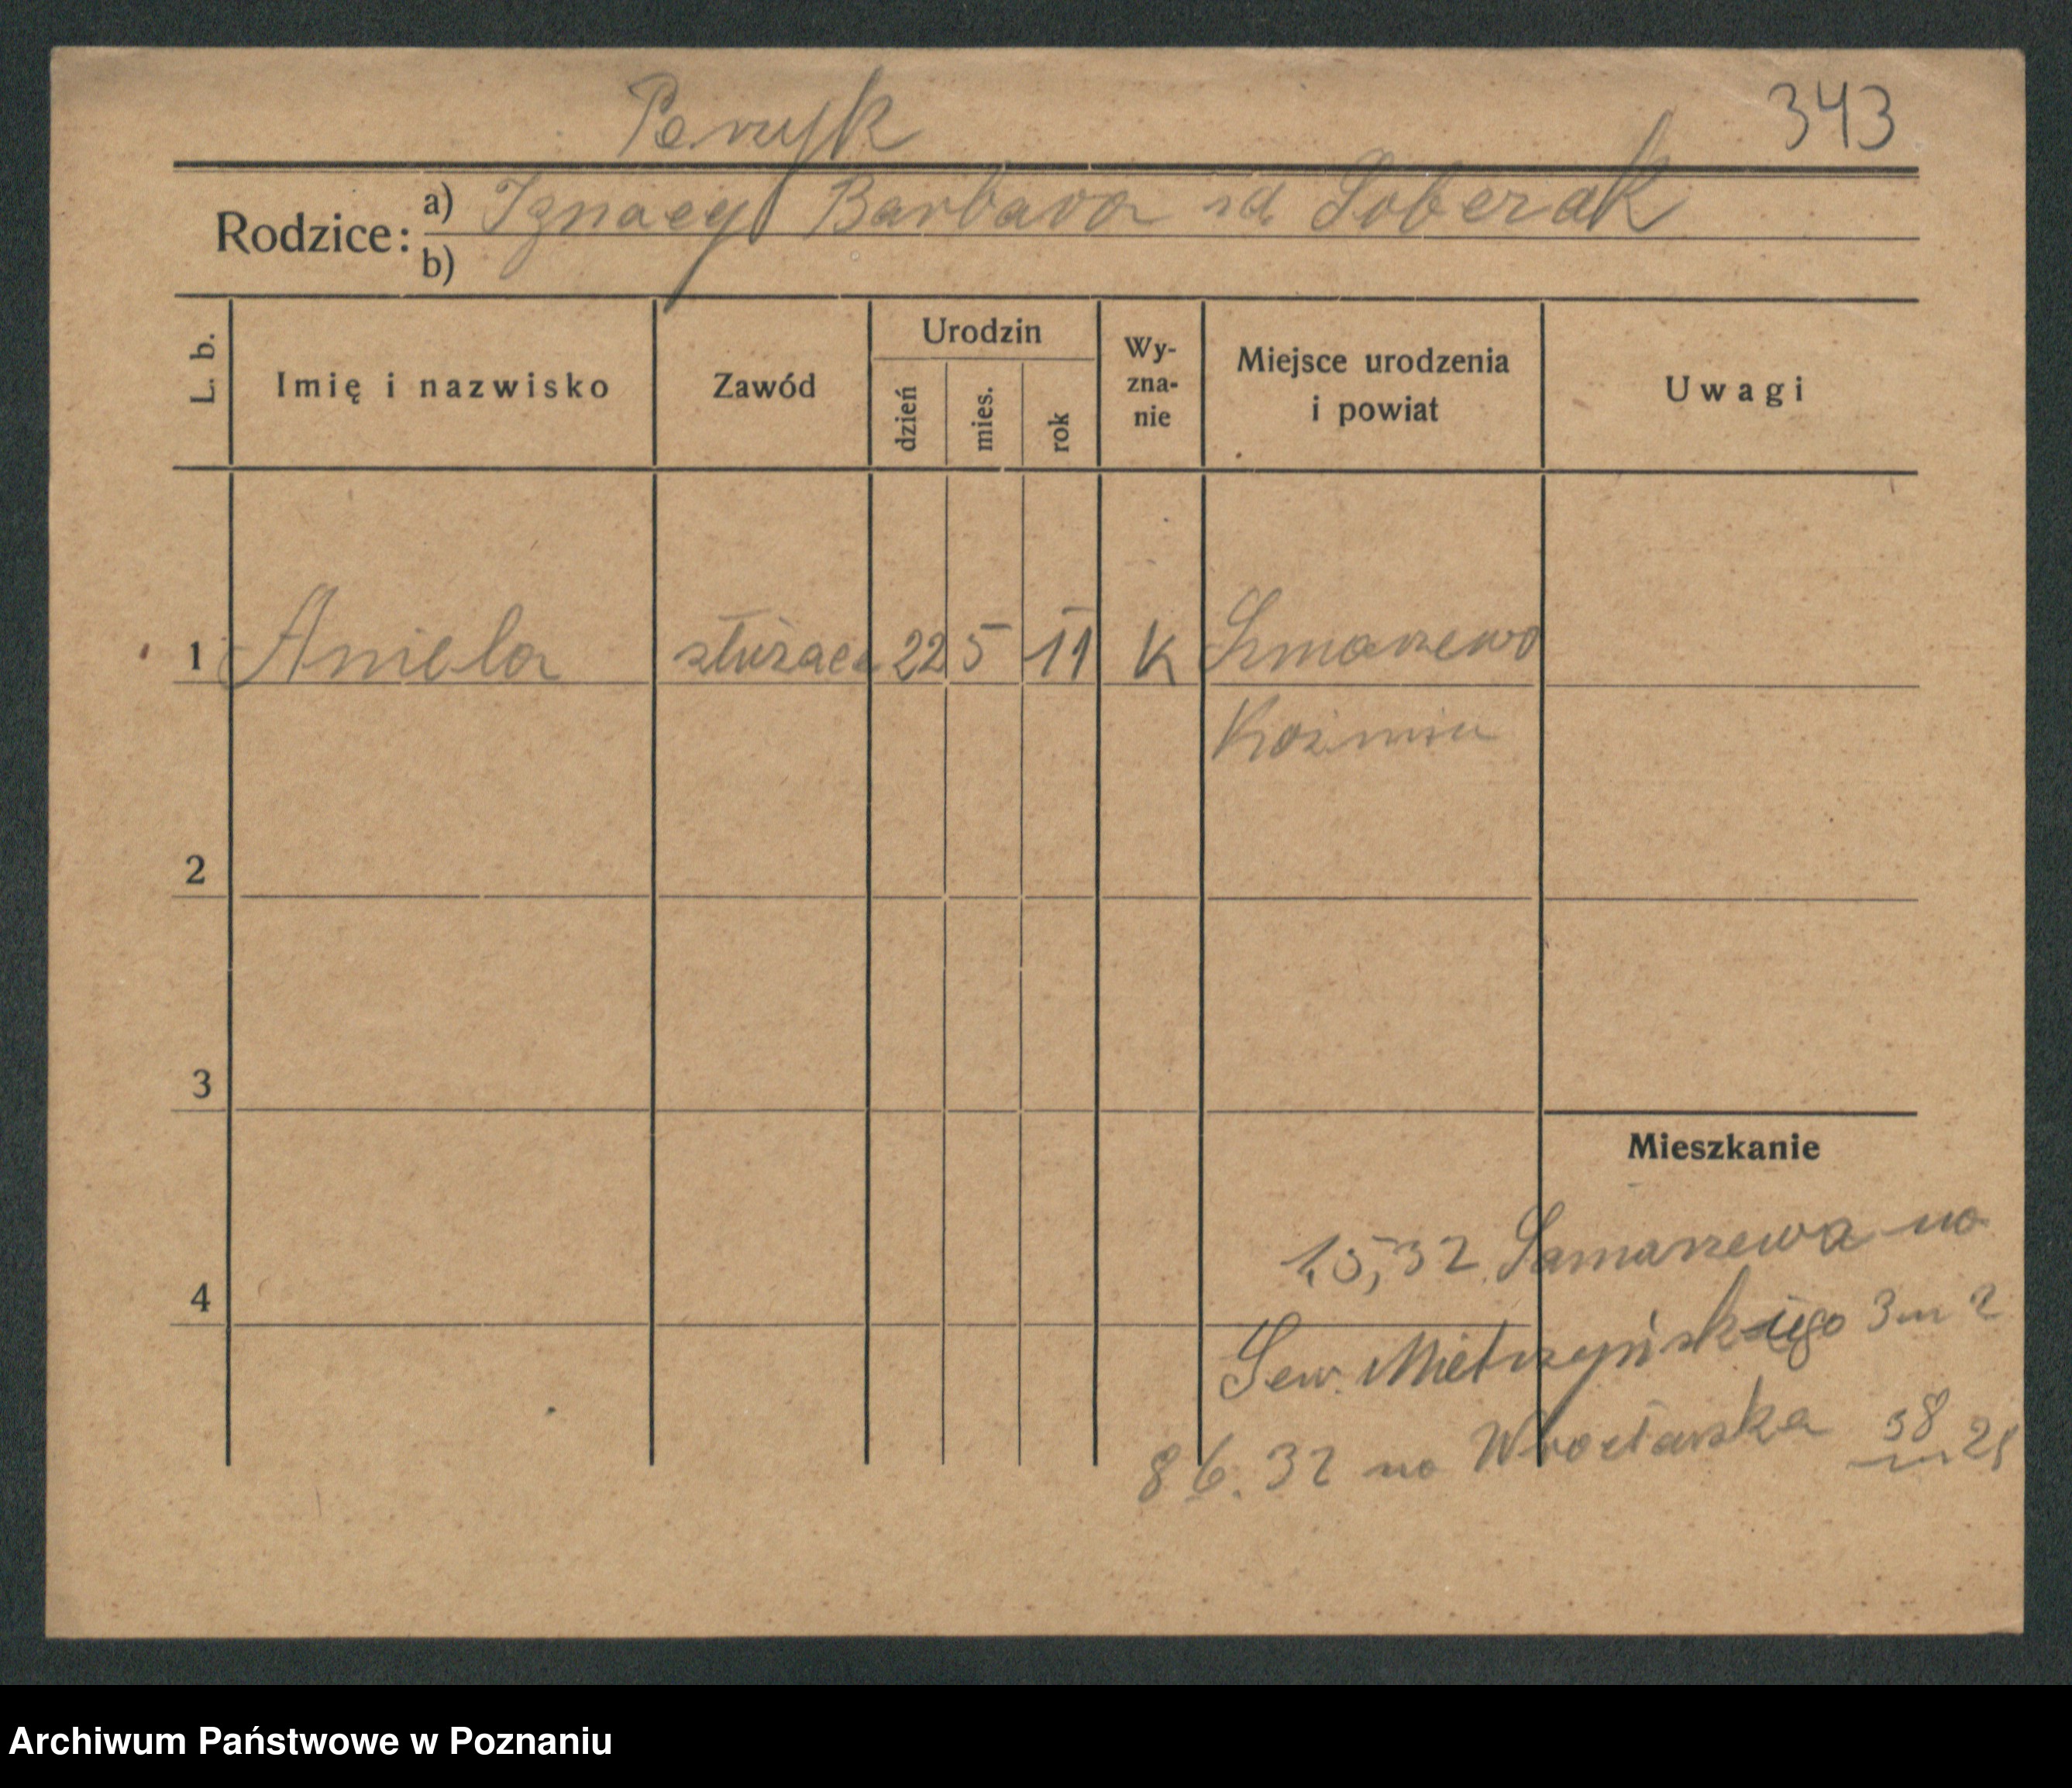 Peryk
343
Rodzice: a) Ignacy Barbara zd Soberak
b)
L. b.
Imię i nazwisko
Zawód
Urodzin
dzień
mies.
rok
Wy-
zna-
nie
Miejsce urodzenia
i powiat
Uwagi
1 Aniela służąca 22 5 11 K Smarzewo
Koźmin
2
3
Mieszkanie
4
1,5,32. Samarzewa na
Sew. Mielżyńskiego 3 m 2
8 6. 32 na Wrocławska 38 m 21
Archiwum Państwowe w Poznaniu